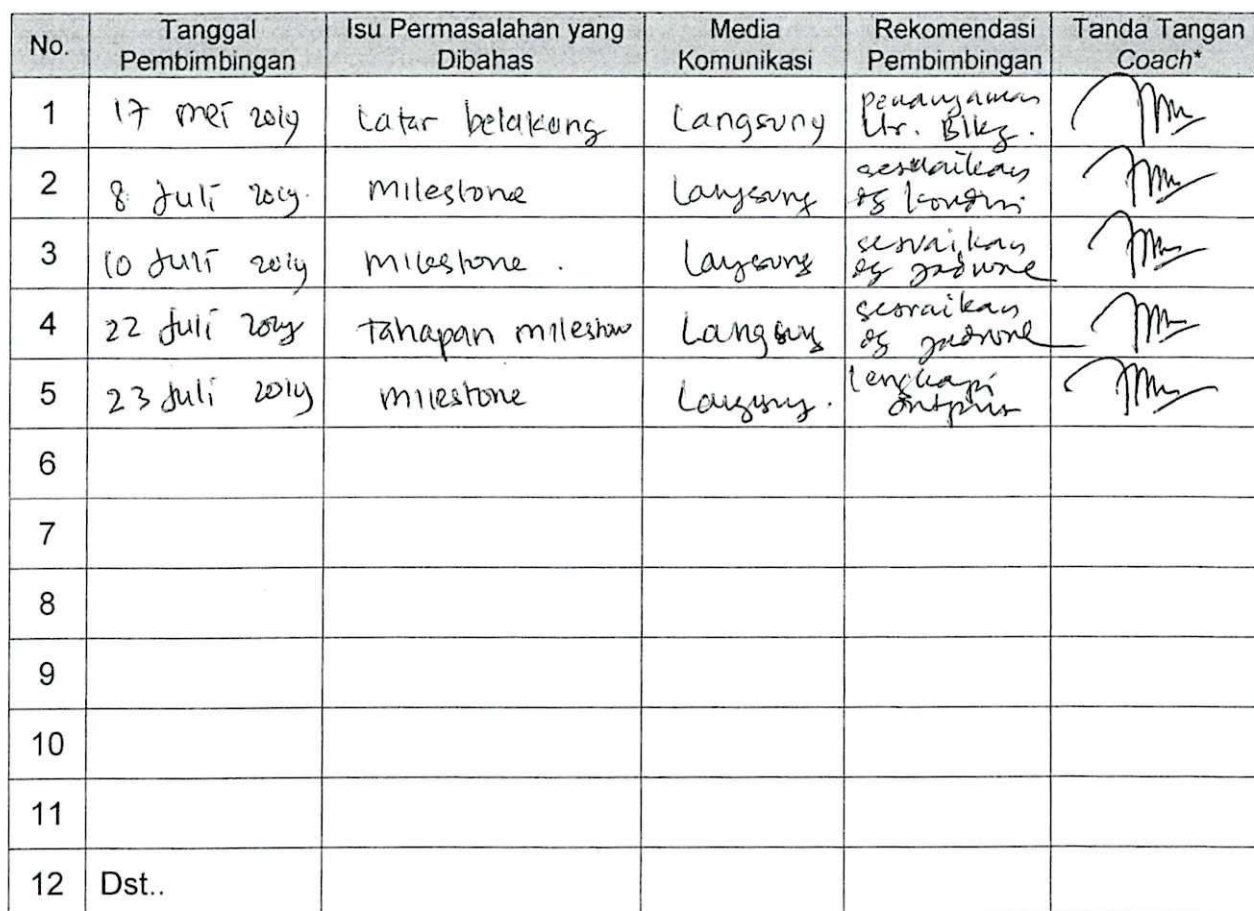 No. Tanggal Pembimbingan Isu Permasalahan yang Dibahas Media Komunikasi Rekomendasi Pembimbingan Tanda Tangan Coach*
1 17 mei 2019 Latar belakang Langsung Ltr. Blkg.
2 8 Juli 2019. milestone Langsung sesuaikan dg kondisi
3 10 Juli 2019 milestone . Langsung sesuaikan dg
4 22 Juli 2019 Tahapan milestone Langsung sesuaikan dg
5 23 Juli 2019 milestone Langsung. lengkapi
6
7
8
9
10
11
12 Dst..